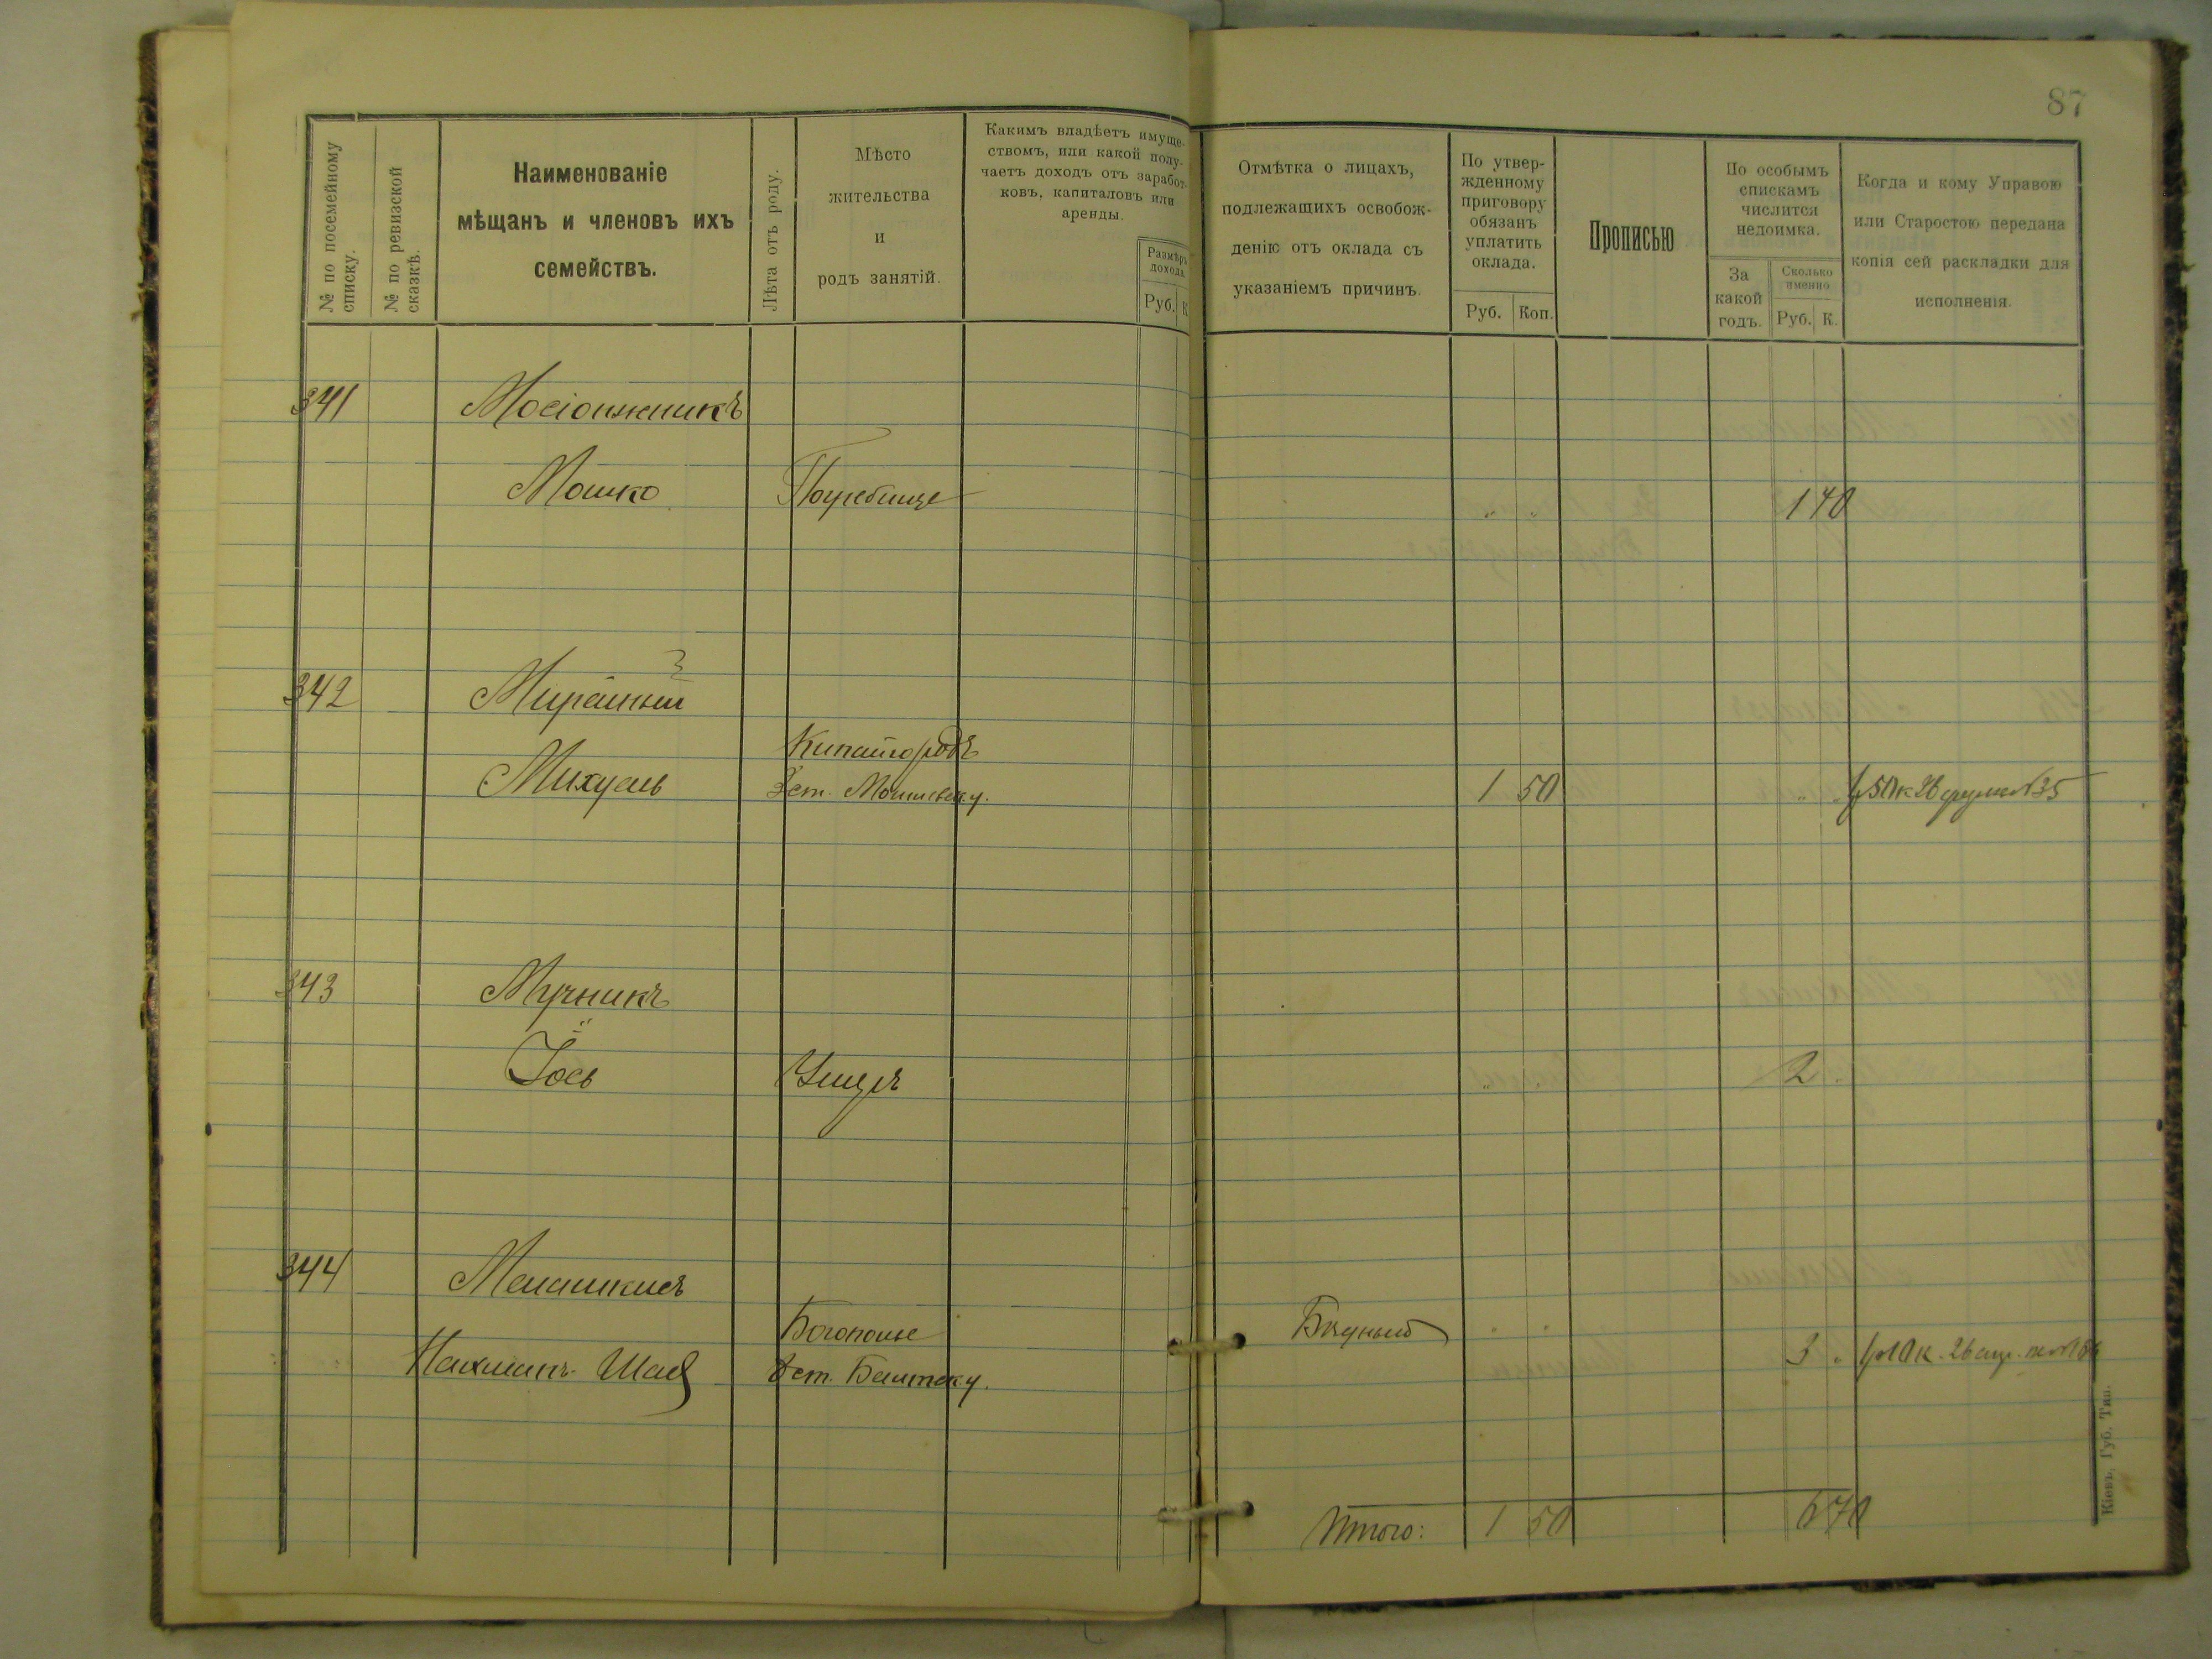 87
№ по посемейному списку.
№ по ревизской сказкѣ.
Наименованіе
мѣщанъ и членовъ ихъ
семействъ.
Лѣта отъ роду.
Мѣсто
жительства
и
родъ занятій.
Какимъ владѣетъ имуще-
ствомъ, или какой полу-
чаетъ доходъ отъ заработ-
ковъ, капиталовъ или
аренды.
Размѣръ
дохода.
Руб. К.
Отмѣтка о лицахъ,
подлежащихъ освобож-
денію отъ оклада съ
указаніемъ причинъ.
По утвер-
жденному
приговору
обязанъ
уплатить
оклада.
Руб. Коп.
Прописью
По особымъ
спискамъ
числится
недоимка.
За
какой
годъ.
Сколько
именно
Руб. К.
Когда и кому Управою
или Старостою передана
копія сей раскладки для
исполненія.
341
Мошко Погребище " " 1 70
342
Китайгородъ
Михуль 1 50 " "
343 Мучникъ
Іось " " 2 "
344
Бѣдный
Нахманъ Шая 3 "
Итого: 1 50 6 70
Кіевъ, Губ. Тип.